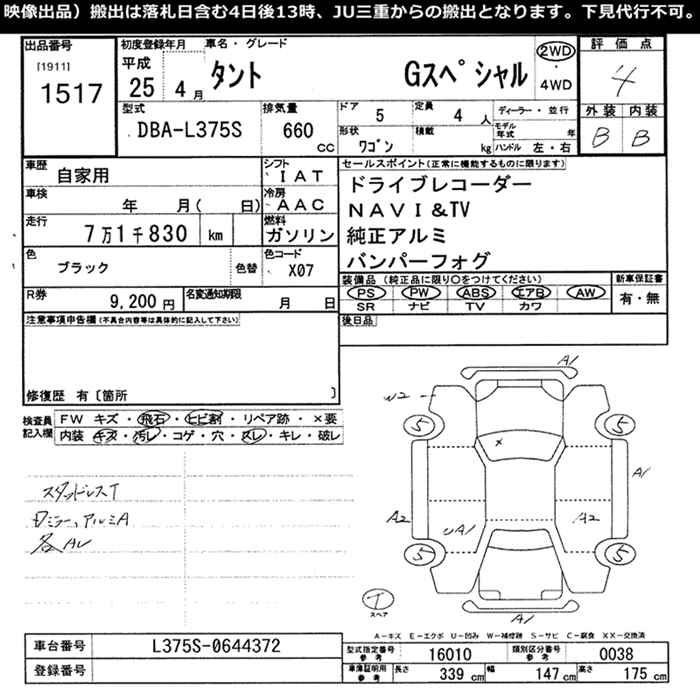 映像出品）搬出は落札日含む4日後13時、JU三重からの搬出となります。下見代行不可。
出品番号
[1911]
1517
初度登録年月 車名・グレード
平成
25 4月 タント Gスペシャル
2WD
4WD
評価点
4
外装 内装
B B
型式 排気量 ドア 定員 ディーラー・並行
DBA-L375S 660 cc 5 4 人
形状 積載 モデル年式 年
ワゴン kg ハンドル 左・右
車歴
自家用
シフト
IAT
車検
年 月( 日)
冷房
AAC
走行
7万1千830 km
燃料
ガソリン
色
ブラック 色替
色コード
X07
R券
9,200円
名変通知期限
月 日
セールスポイント(正常に機能するものに限ります)
ドライブレコーダー
NAVI&TV
純正アルミ
バンパーフォグ
装備品 (純正品に限り○をつけてください) 新車保証書
PS PW ABS エアB AW 有・無
SR ナビ TV カワ
後日品
注意事項申告欄(不具合内容等は具体的に記入して下さい)
修復歴 有〔箇所 〕
検査員記入欄
FW キズ・飛石・ヒビ割・リペア跡・×要
内装・キズ・汚レ・コゲ・穴・スレ・キレ・破レ
スタッドレスT
ロミラー、アルミA
各AU
A1
W2
5 5
×
A1
A2 UA1 A2
5 5
T
スペア
A1
A－キズ E－エクボ U－凹み W－補修跡 S－サビ C－腐食 XX－交換済
車台番号 L375S-0644372
登録番号
型式指定番号参考 16010 類別区分番号参考 0038
車庫証明用参考 長さ 339 cm 幅 147 cm 高さ 175 cm